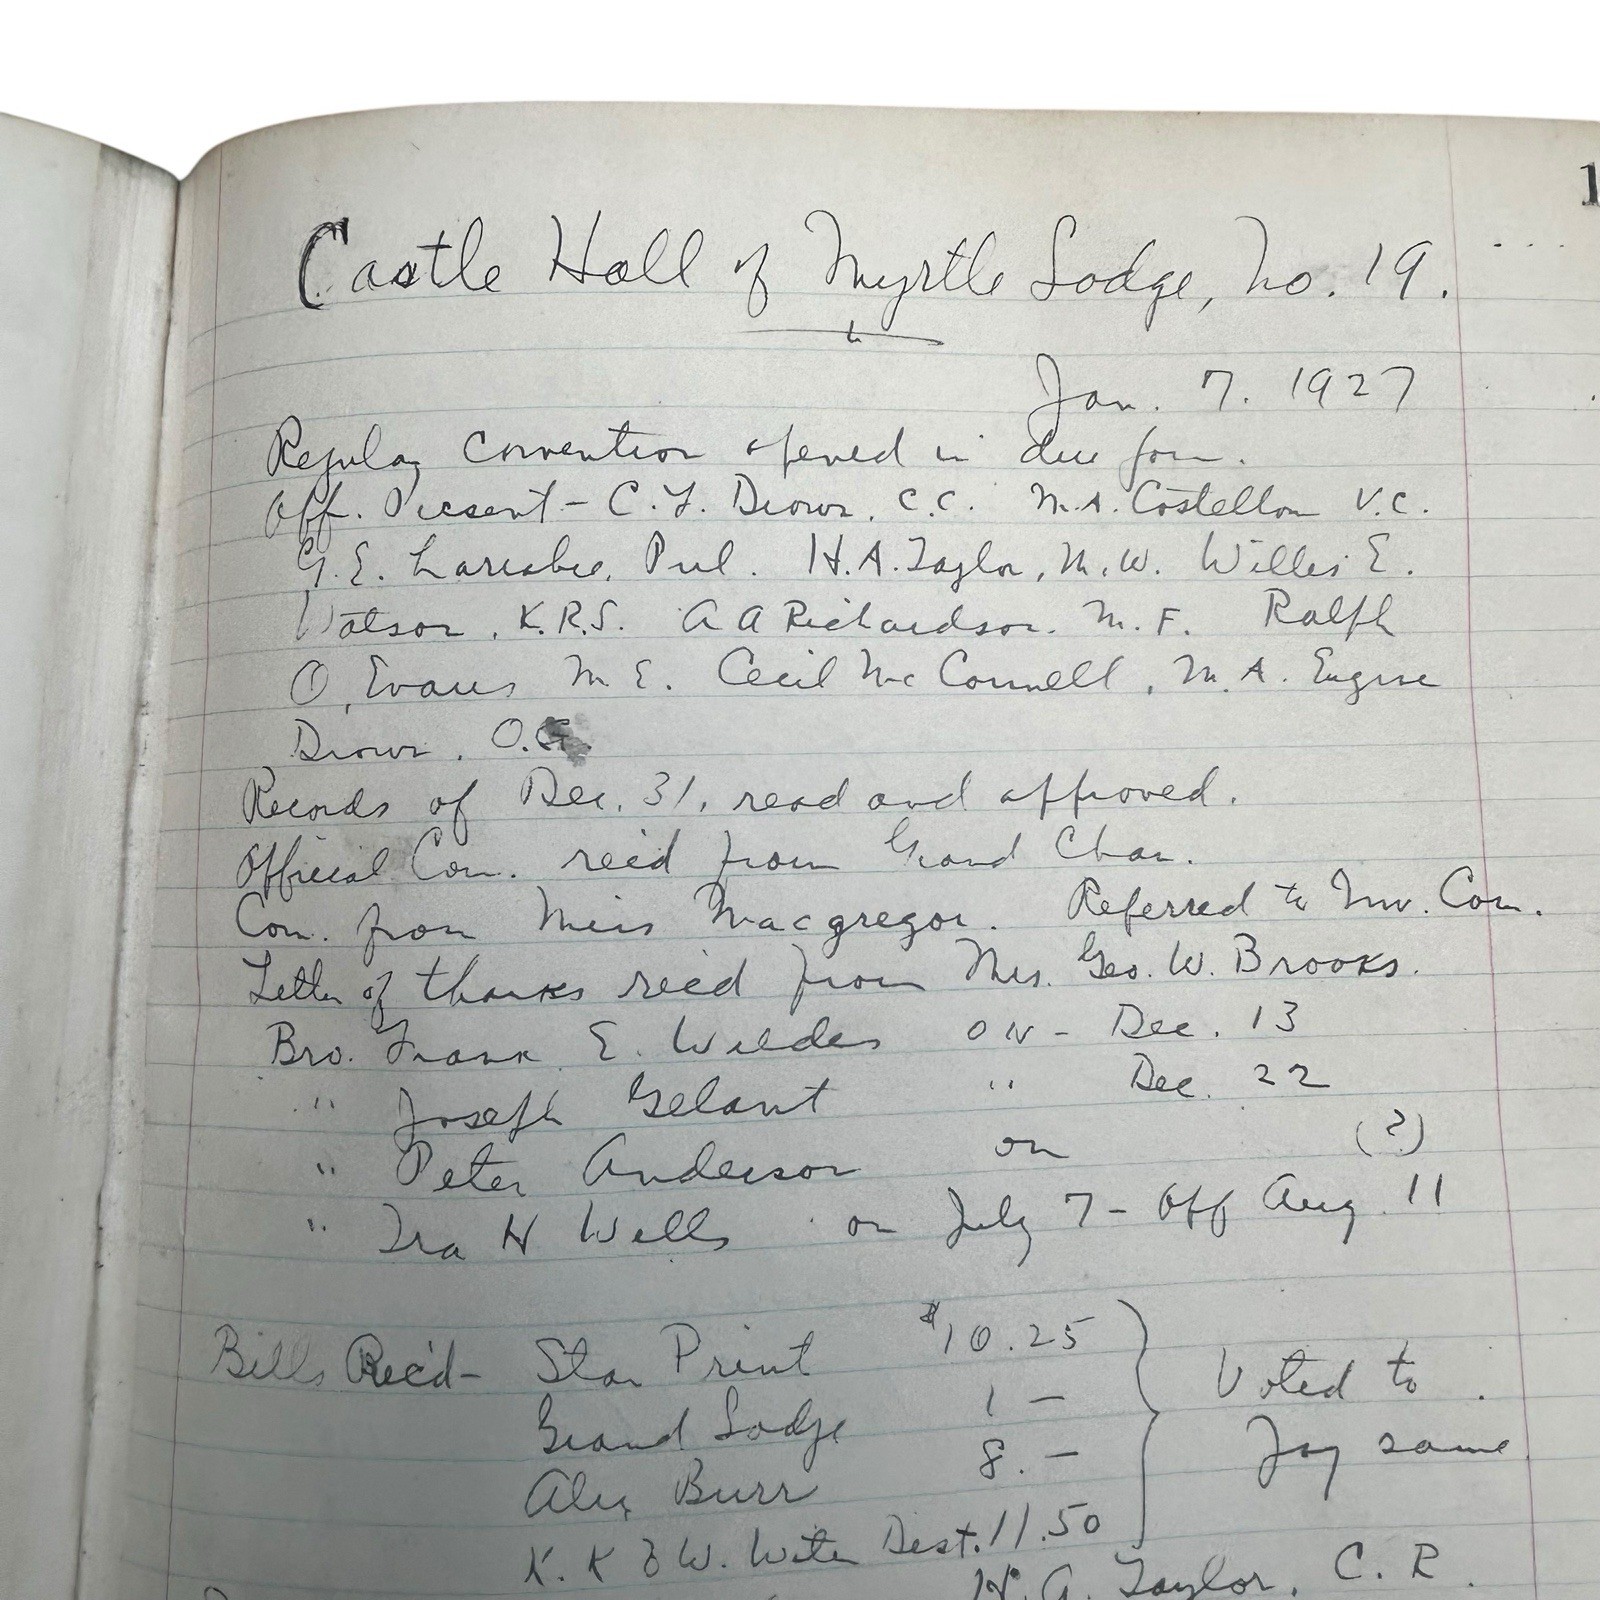 1
Castle Hall of Myrtle Lodge, No. 19.
Jan. 7. 1927
Regular Convention opened in due form.
Off. Present - C. F. Drown, C.C. M.A. Costellow V.C.
G. E. Larrabee, Prel. H. A. Taylor, M.W. Willis E.
Watson, K.R.S. A A Richardson. M. F. Ralph
O, Evans M E. Cecil McConnell, M. A. Eugene
Drown. O.G.
Records of Dec. 31, read and approved.
Official Com. rec'd from Grand Chan.
Com. from Miss Macgregor. Referred to Inv. Com.
Letter of thanks rec'd from Mrs. Geo. W. Brooks.
Bro. Frank E. Wildes on - Dec. 13
" Joseph Gelant " Dec. 22
" Peter Anderson on (?)
" Ira H Wells on July 7 - Off Aug. 11
Bills Rec'd - Star Print $10.25
Grand Lodge 1 - Voted to
Alex Burr 8. - pay same
K. K & W. Water Dist. 11.50
H. A. Taylor, C. R.